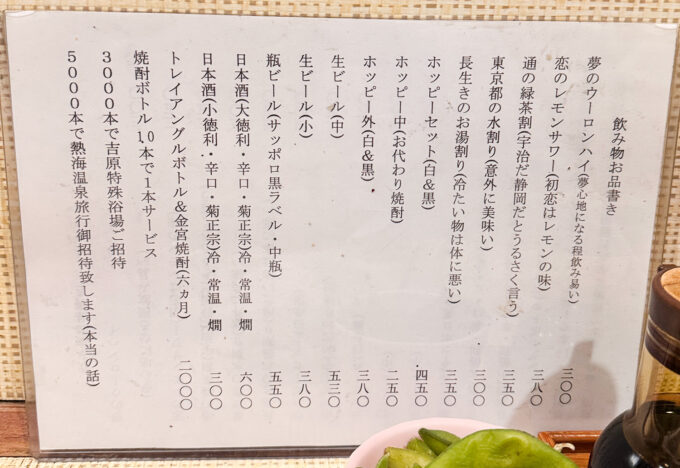 飲み物お品書き
夢のウーロンハイ(夢心地になる程飲み易い) 三〇〇
恋のレモンサワー(初恋はレモンの味) 三八〇
通の緑茶割(宇治だ静岡だとうるさく言う) 三五〇
東京都の水割り(意外に美味い) 三〇〇
長生きのお湯割り(冷たい物は体に悪い) 三五〇
ホッピーセット(白&黒) 四五〇
ホッピー中(お代わり焼酎) 二五〇
ホッピー外(白&黒) 三八〇
生ビール(中) 五三〇
生ビール(小) 三八〇
瓶ビール(サッポロ黒ラベル・中瓶) 五五〇
日本酒(大徳利・辛口・菊正宗)冷・常温・燗 六〇〇
日本酒(小徳利・辛口・菊正宗)冷・常温・燗 三〇〇
トレイアングルボトル&金宮焼酎(六ヵ月) 二〇〇〇
焼酎ボトル10本で1本サービス
3000本で吉原特殊浴場ご招待
5000本で熱海温泉旅行御招待致します(本当の話)